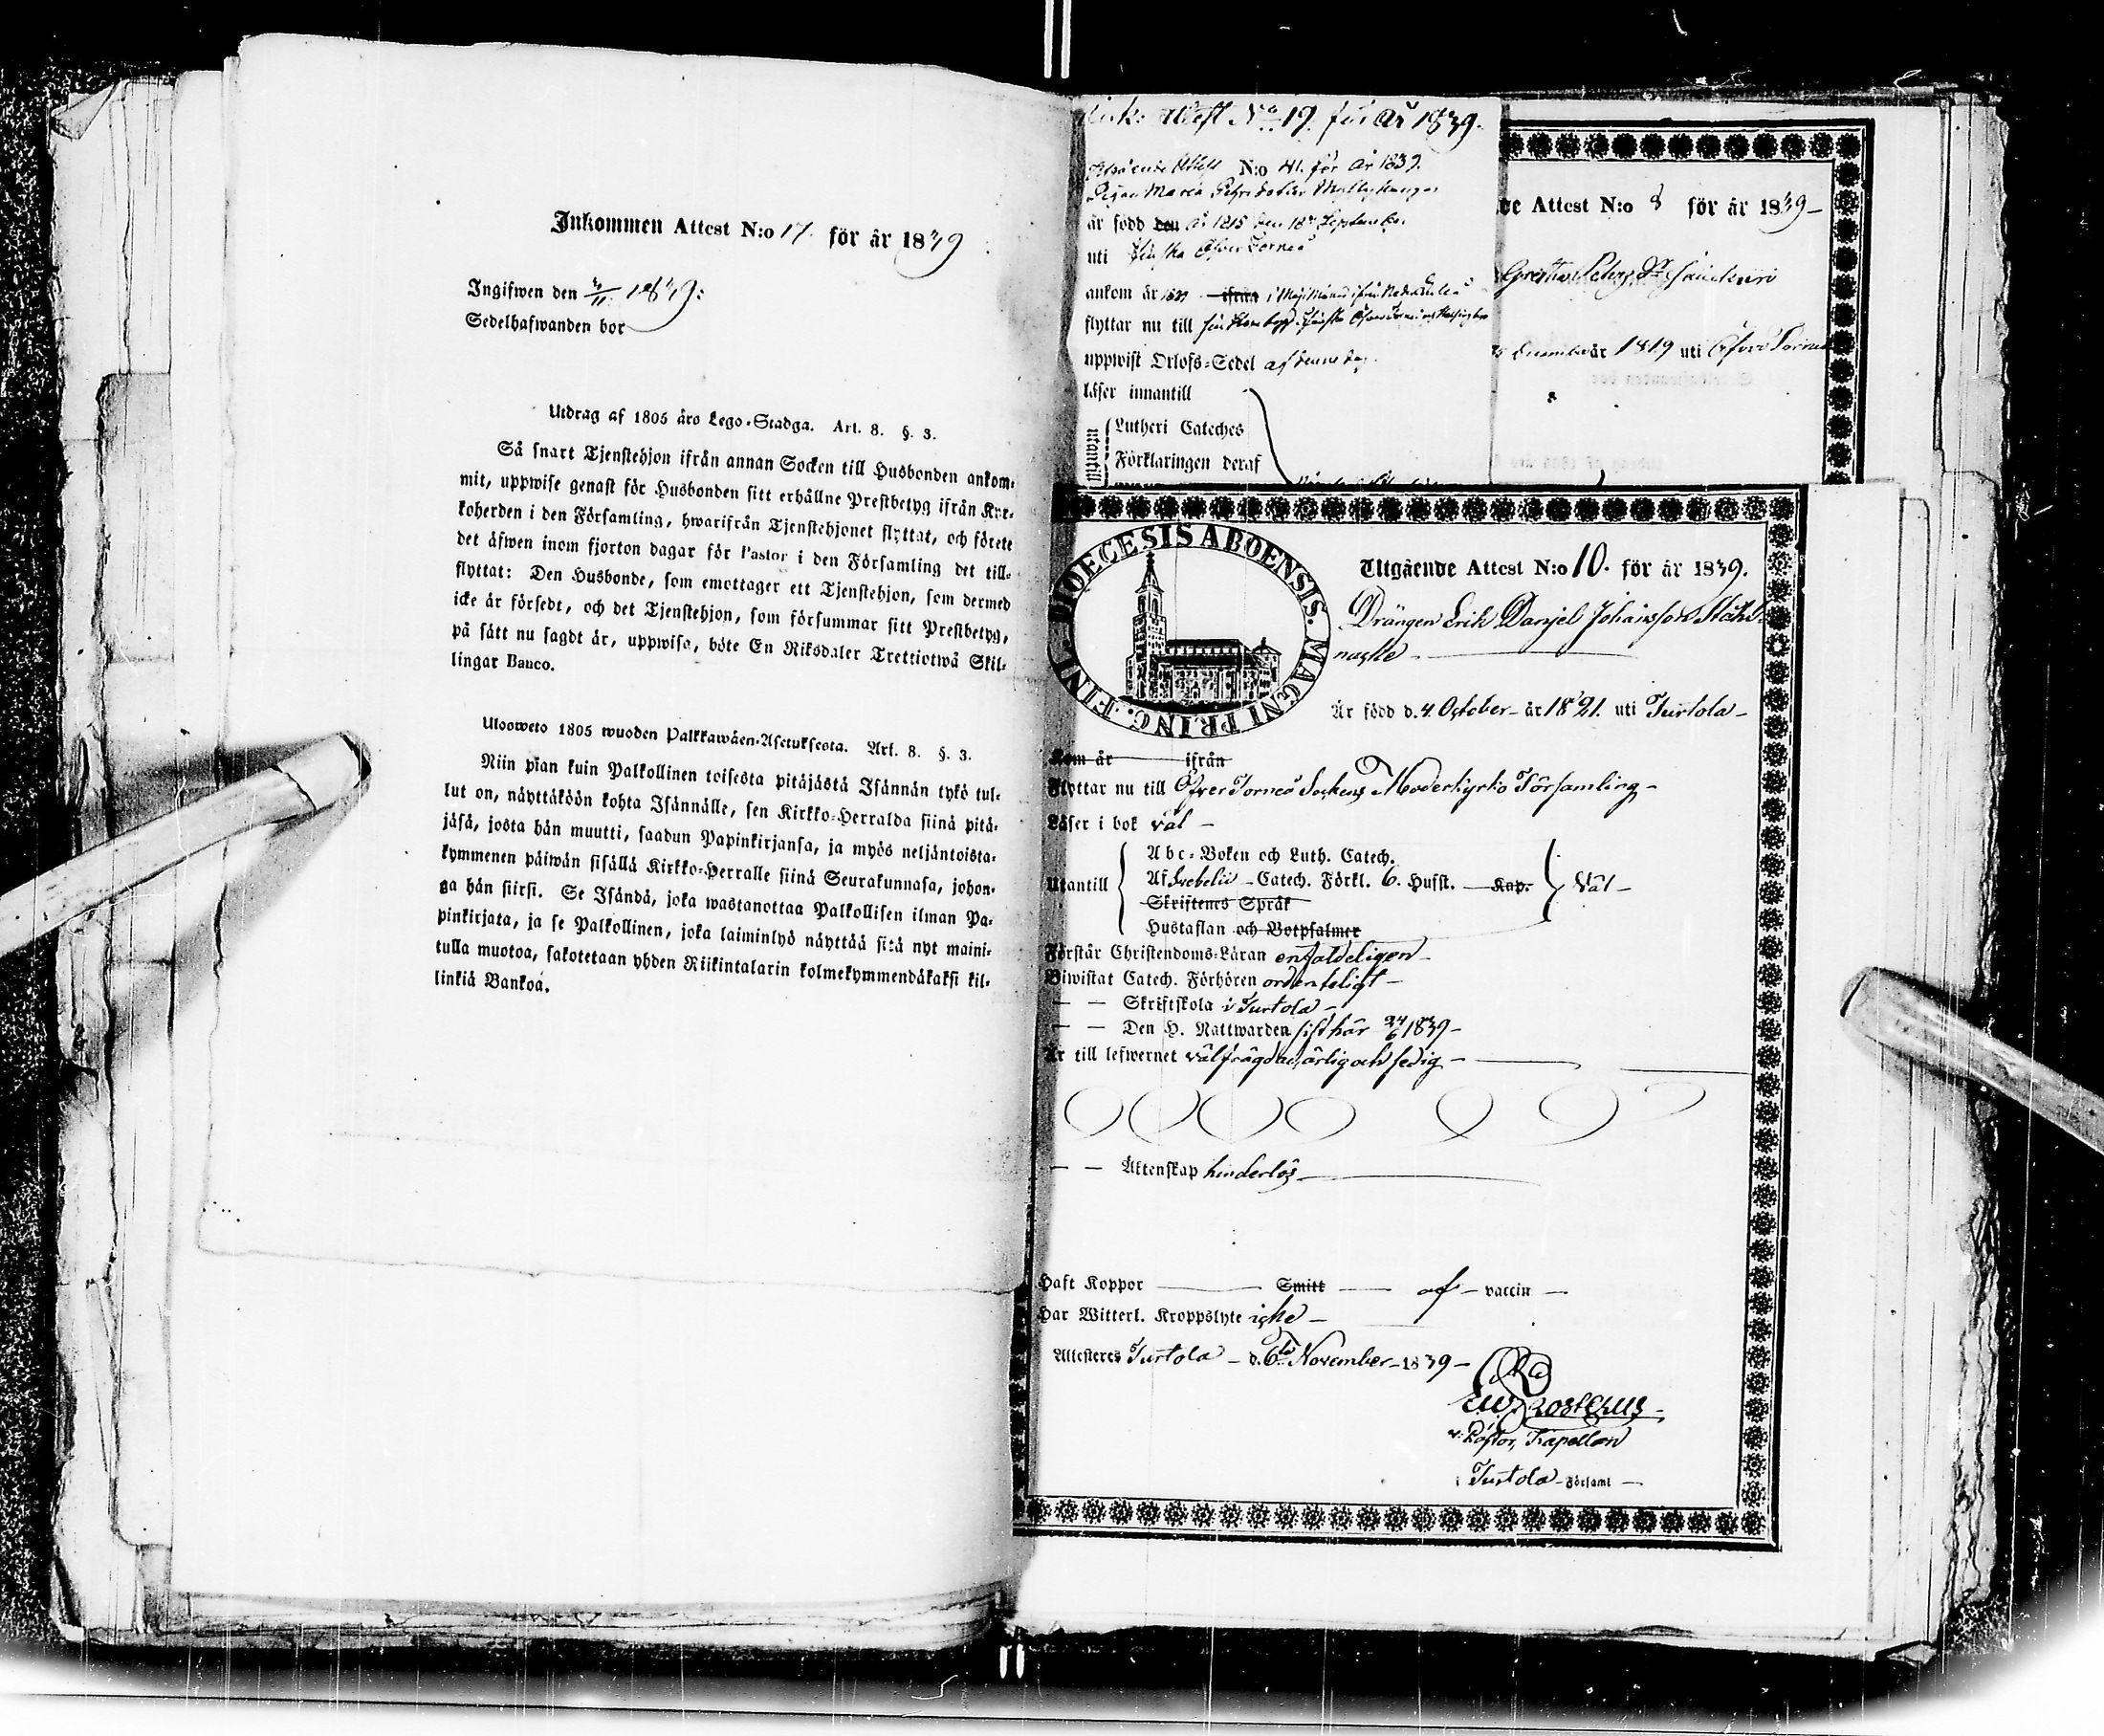 Inkommen Attest N:o 17. för år 1839
Ingifwen den 4/11 1839:
Sedelhafwanden bor
Utdrag af 1805 års Lego-Stadga. Art. 8. §. 3.
Så snart Tjenstehjon ifrån annan Socken till Husbonden ankom-
mit, uppwise genast för Husbonden sitt erhållne Prestbetyg ifrån Kyr-
koherden i den Församling, hwarifrån Tjenstehjonet flyttat, och förete
det äfwen inom fjorton dagar för Pastor i den Församling det till-
flyttat: Den Husbonde, som emottager ett Tjenstehjon, som dermed
icke är försedt, och det Tjenstehjon, som försummar sitt Prestbetyg,
på sätt nu sagdt är, uppwisa, böte En Riksdaler Trettiotwå Skil-
lingar Banco.
Ulosweto 1805 wuoden Palkkawäen-Asetuksesta. Art. 8. §. 3.
Niin pian kuin Palkollinen toisesta pitäjästä Isännän tykö tul-
lut on, näyttäköön kohta Isännälle, sen Kirkko-Herralda siinä pitä-
jäsä, josta hän muutti, saadun Papinkirjansa, ja myös neljäntoista-
kymmenen päiwän sisällä Kirkko-Herralle siinä Seurakunnasa, johon-
ga hän siirsi. Se Isändä, joka wastanottaa Palkollisen ilman Pa-
pinkirjata, ja se Palkollinen, joka laiminlyö näyttää sitä nyt maini-
tulla muotoa, sakotetaan yhden Riikintalarin kolmekymmendäkaksi kil-
linkiä Bankoa.
Attest No 19. för år 1839.
Attest N:o 41. för år 1839.
Pigan Maria
är född den år 1815 den 18de September
uti Finska Öfver Torneå
ankom år ifrån
flyttar nu till
uppwist Orlofs-Sedel af denne dag.
läser innantill
utantill
Lutheri Cateches
Förklaringen deraf
de Attest N:o 8 för år 1839
Gretha
December år 1819 uti Öfver Torneå
DIOECESIS ABOENSIS. MAGNI PRINC. FINL.
Utgående Attest N:o 10. för år 1839.
Drängen Erik Danjel Johansson
Är född d. 4. October år 1821. uti Turtola
Kom år ifrån
Flyttar nu till Öfver Torneå Sockens Moderkyrko Församling
Läser i bok väl
Abc-Boken och Luth. Catech.
Utantill Af Svebelii Catech. Förkl. 6. Hufst. Kap. Väl
Skriftenes Språk
Hustaflan och Botpsalmer
Förstår Christendoms-Läran enfaldeligen
Biwistat Catech. Förhören ordenteligt
— — Skriftskola i Turtola
— — Den H. Nattwarden sist här 24/6 1839
Är till lefwernet välfrägdad, ärlig och sedig
— — Äktenskap hinderlös
Haft Koppor Smitt af vaccin
Har Witterl. Kroppslyte icke
Attesteres Turtola d. 6te November 1839
v. Pastor, Kapellan
i Turtola Församl